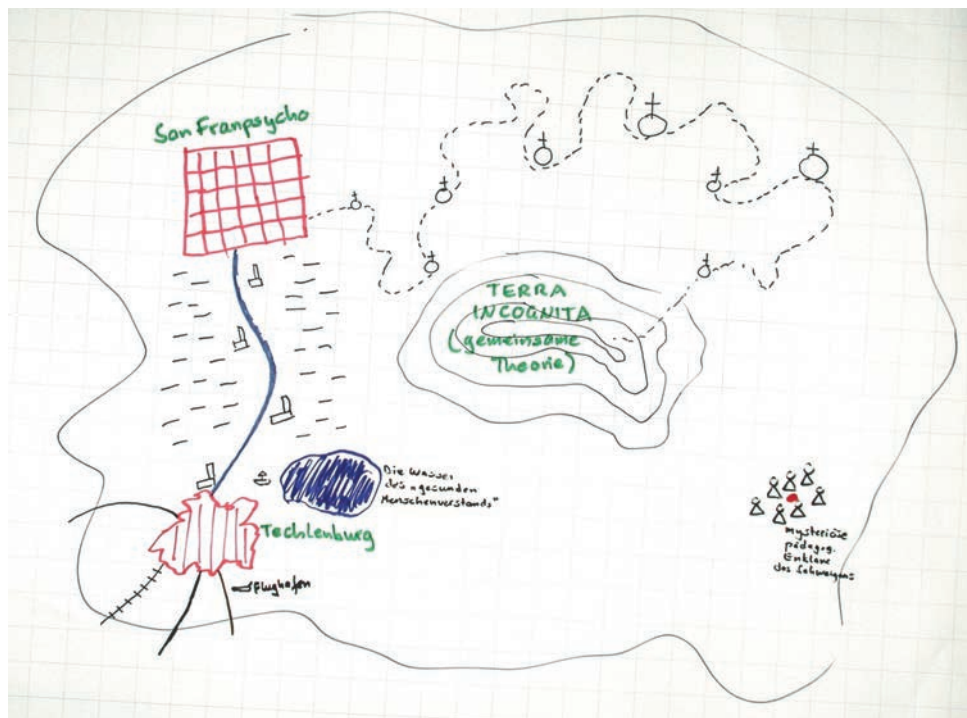 San Franpsycho
TERRA
INCOGNITA
(gemeinsame
Theorie)
Die Wasser
des „gesunden
Menschenverstands"
Techlenburg
Flughafen
Mysteriöse
pädagog.
Enklave
des Schweigens